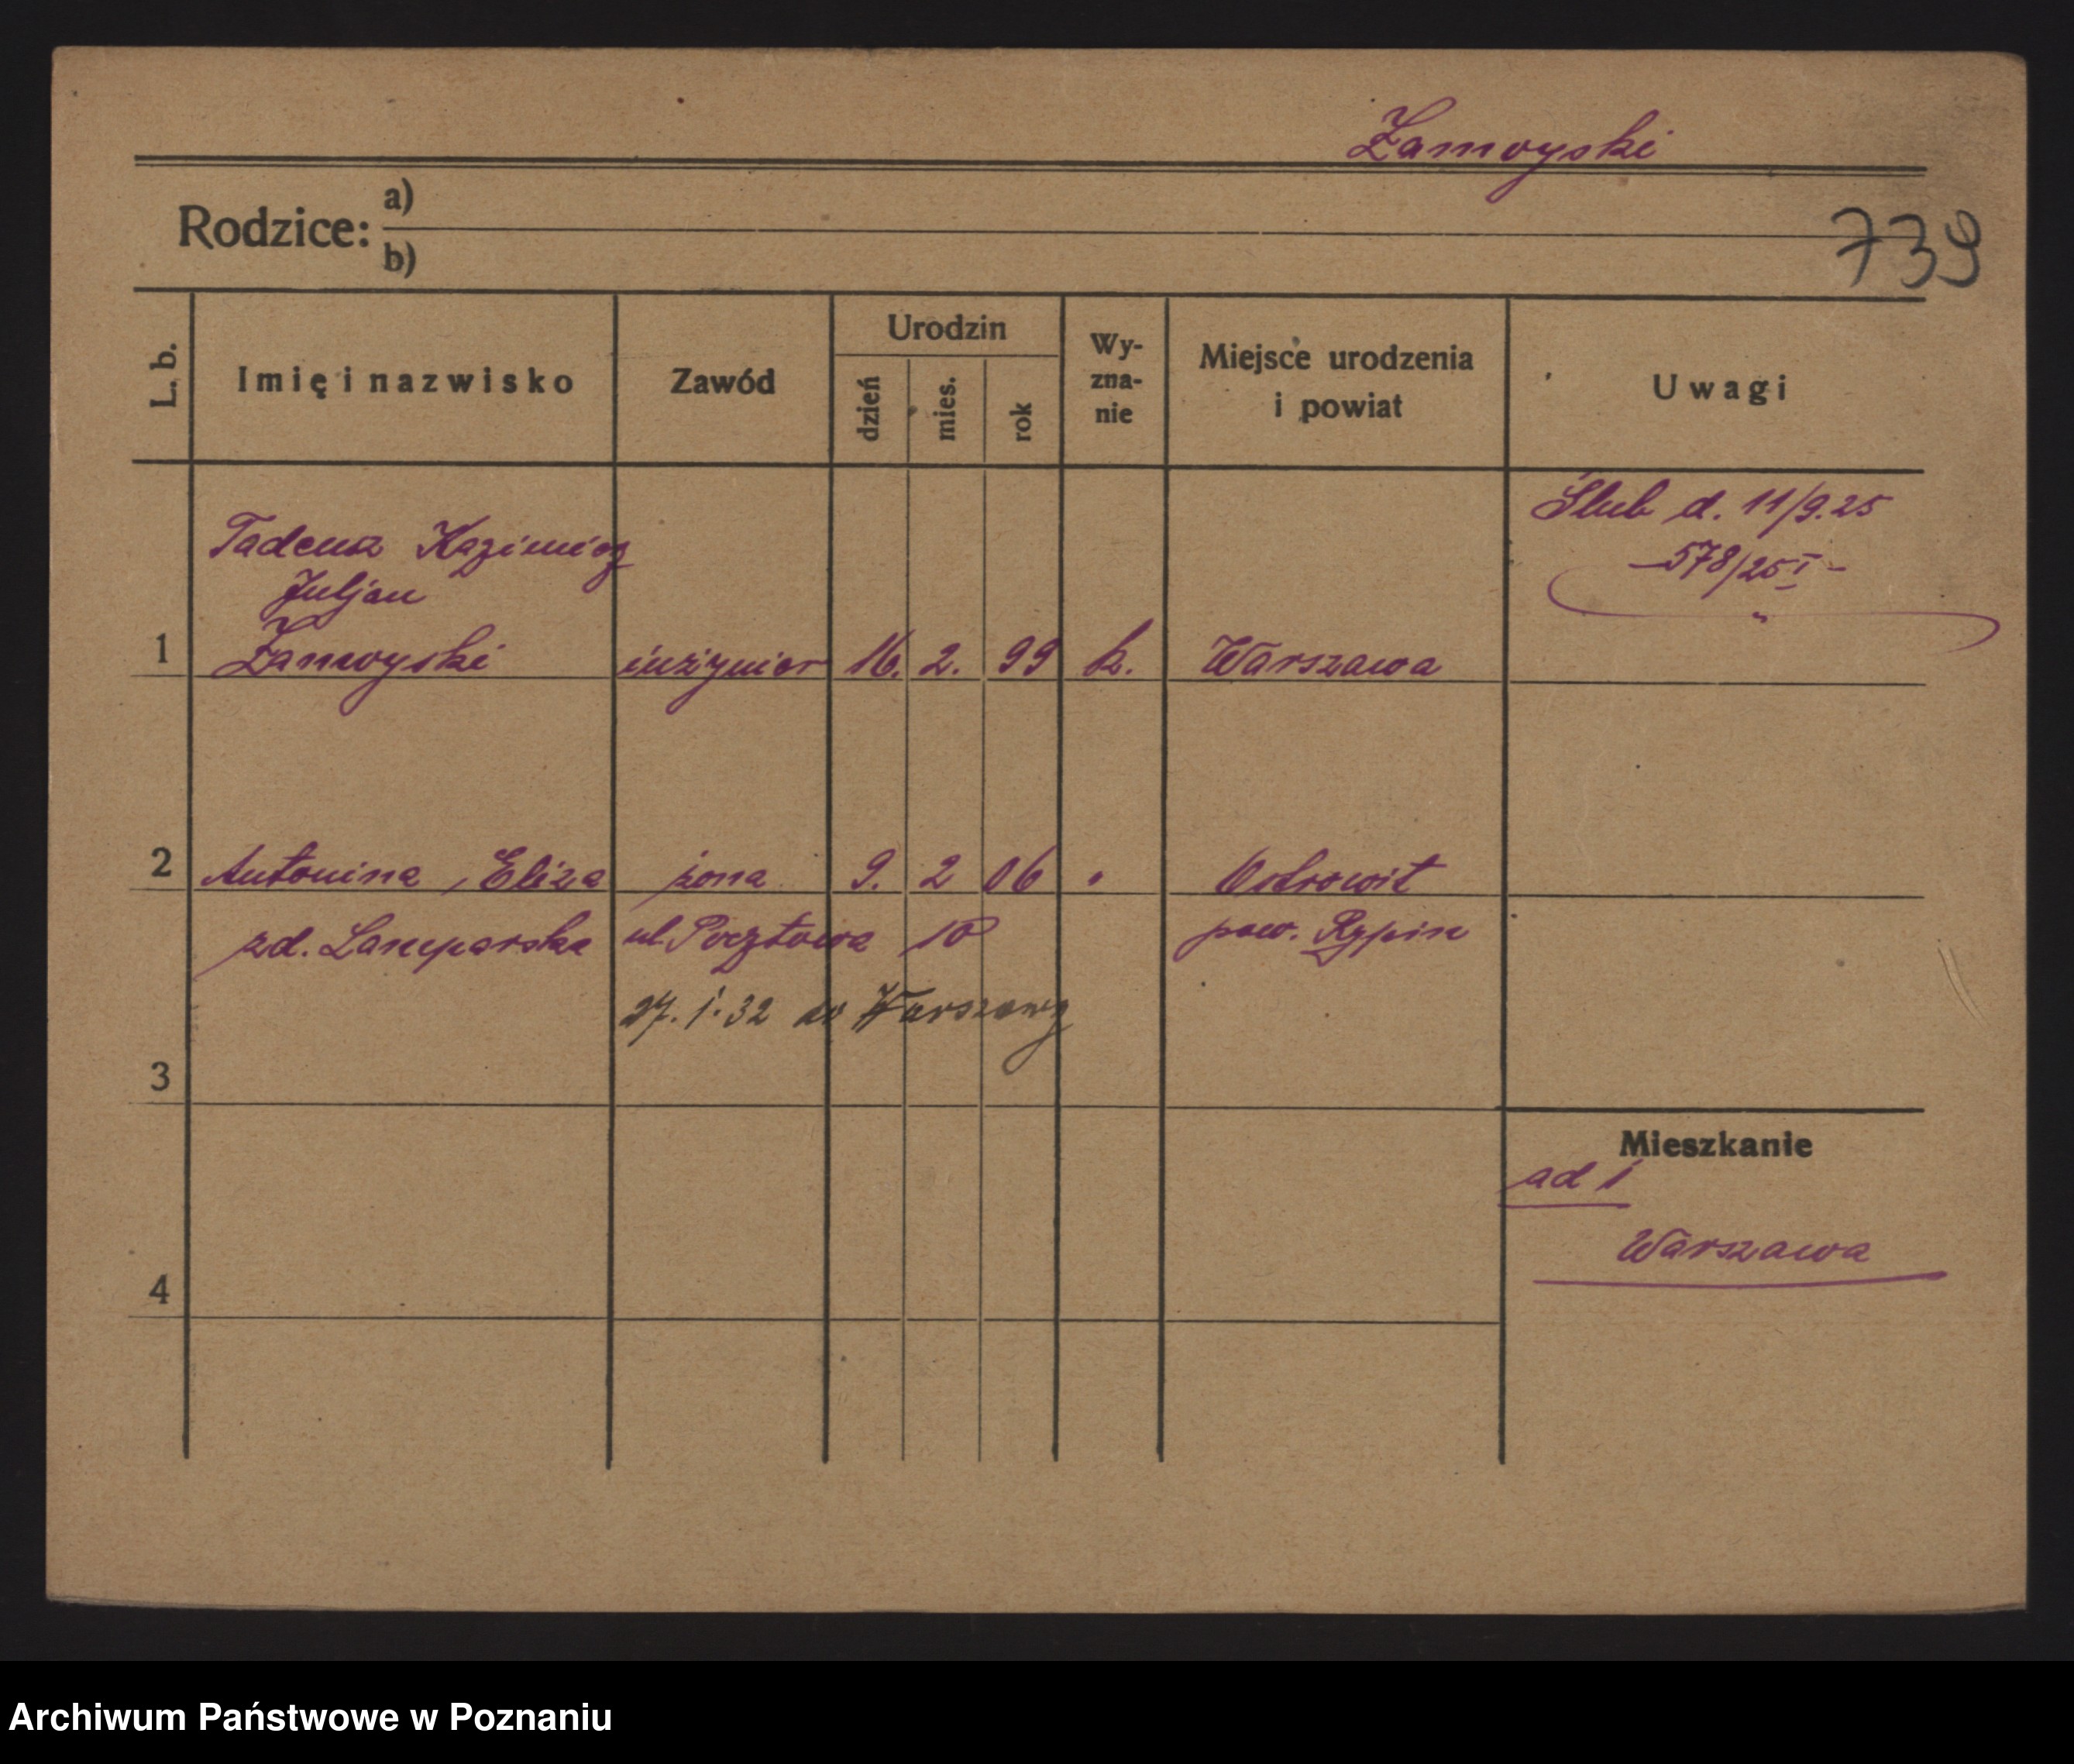 Zamoyski
Rodzice:
a)
b)
739
L. b.
Imię i nazwisko
Zawód
Urodzin
dzień
mies.
rok
Wy-
zna-
nie
Miejsce urodzenia
i powiat
Uwagi
Ślub d. 11/9.25
–578/25 I –
Tadeusz Kazimierz
Juljan
1 Zamoyski inżynier 16. 2. 99 k. Warszawa
2 Antonina, Eliza żona 9. 2 06 " Ostrowit
zd. Lamparska ul. Pocztowa 10 pow. Rypin
27. 1. 32 do Warszawy
3
Mieszkanie
ad 1
Warszawa
4
Archiwum Państwowe w Poznaniu